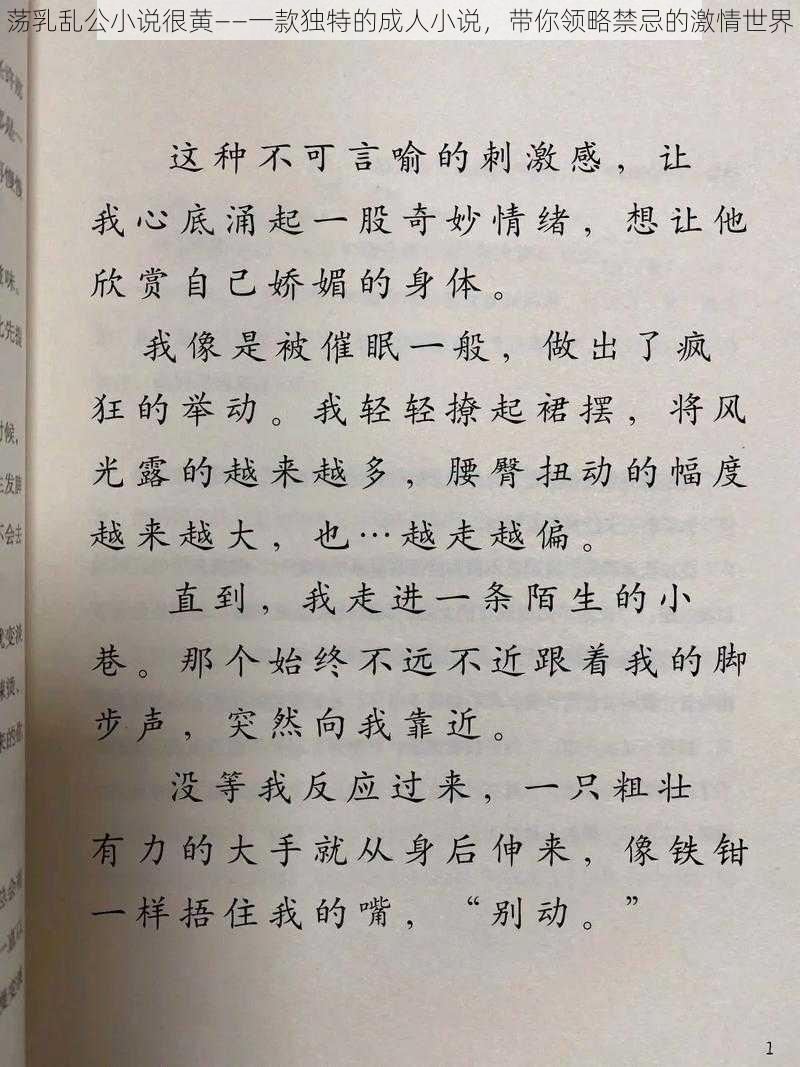 荡乳乱公小说很黄——一款独特的成人小说，带你领略禁忌的激情世界
这种不可言喻的刺激感，让
我心底涌起一股奇妙情绪，想让他
欣赏自己娇媚的身体。
我像是被催眠一般，做出了疯
狂的举动。我轻轻撩起裙摆，将风
光露的越来越多，腰臀扭动的幅度
越来越大，也…越走越偏。
直到，我走进一条陌生的小
巷。那个始终不远不近跟着我的脚
步声，突然向我靠近。
没等我反应过来，一只粗壮
有力的大手就从身后伸来，像铁钳
一样捂住我的嘴，“别动。”
1